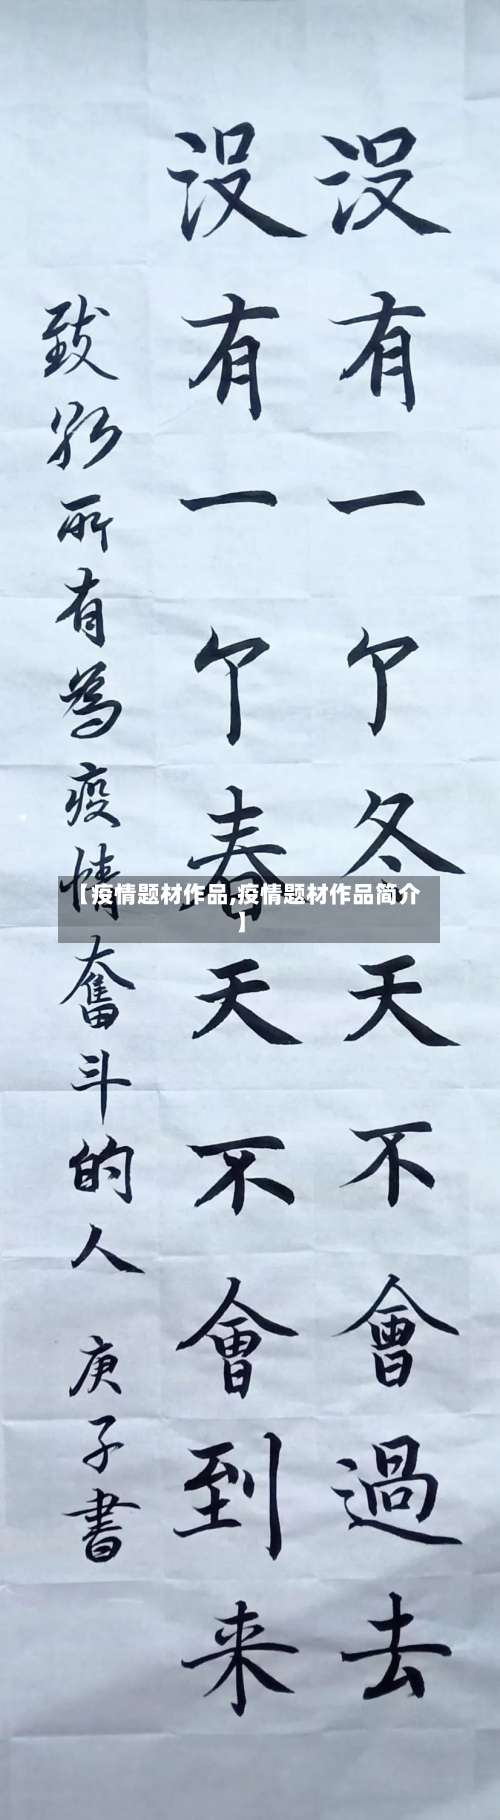 没有一个冬天不會過去
没有一个春天不會到来
致敬所有為疫情奮斗的人 庚子書
【疫情题材作品,疫情题材作品简介
】